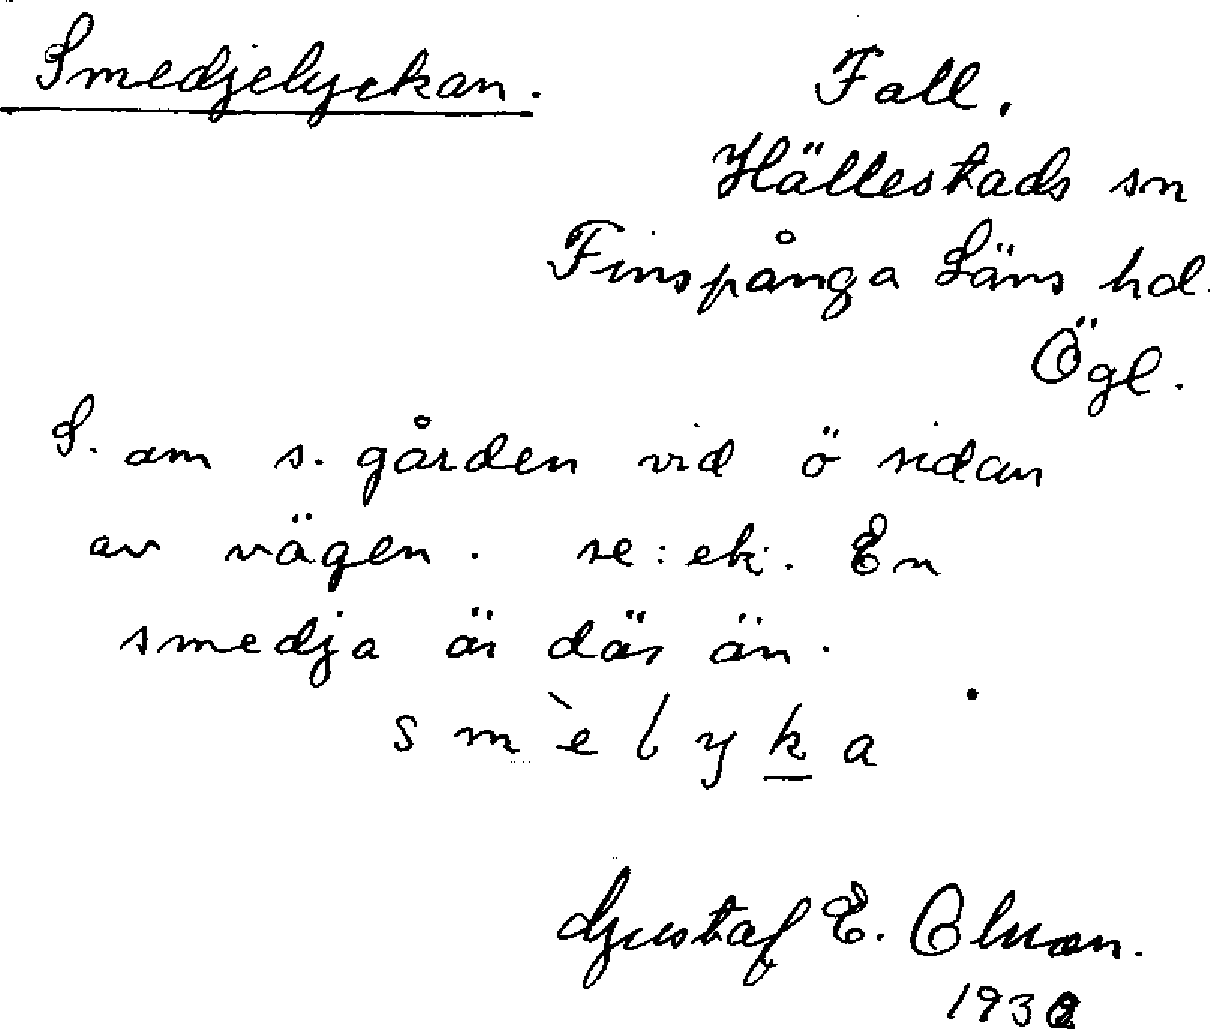 Smedjelyckan.
Fall.
Hällestads sn
Finspånga Läns hd.
Ögl.
S. om s. gården vid ö sidan
av vägen. se: ek. En
smedja är där än.
smèlyka
Gustaf E.